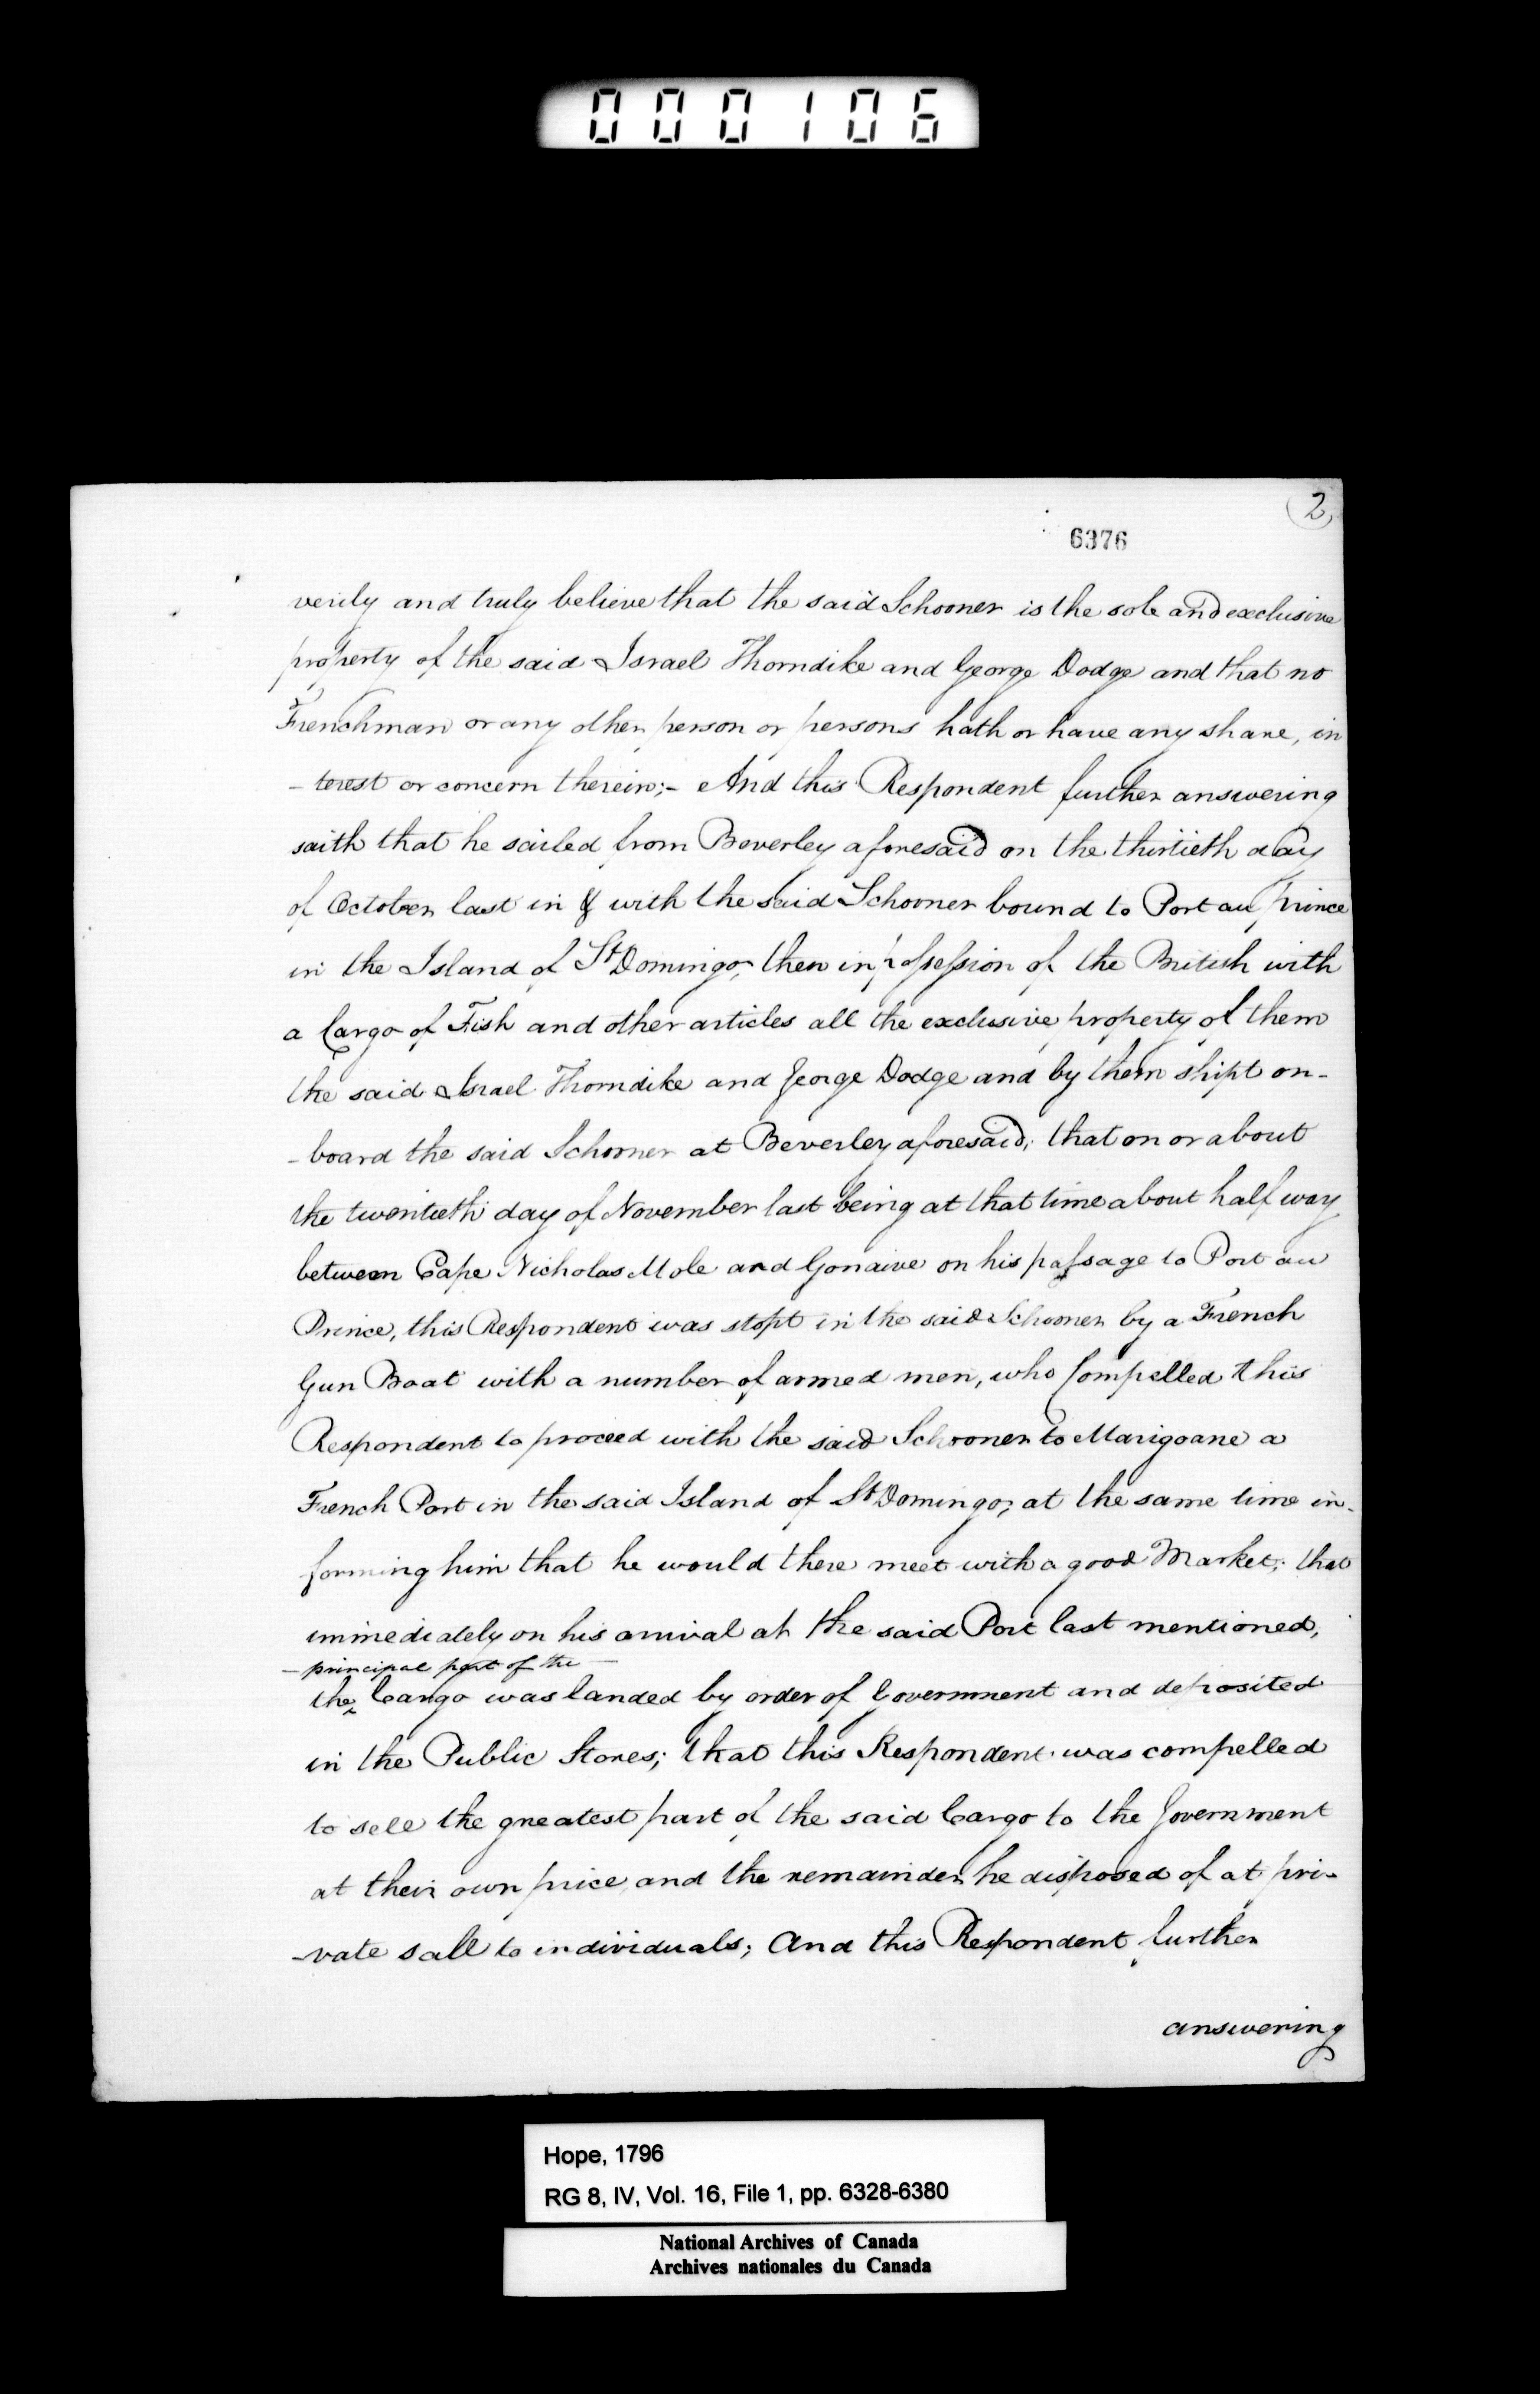 000106
2
6376
verily and truly believe that the said Schooner is the sole and exclusive
property of the said Israel Thorndike and George Dodge and that no
Frenchman or any other person or persons hath or have any share, in
-terest or concern therein;- And this Respondent further answering
saith that he sailed from Beverley aforesaid on the thirtieth day
of October last in & with the said Schooner bound to Port au prince
in the Island of St Domingo, then in possession of the British with
a Cargo of Fish and other articles all the exclusive property of them
the said Israel Thorndike and George Dodge and by them shipt on-
-board the said Schooner at Beverley aforesaid; that on or about
the twentieth day of November last being at that time about half way
between Cape Nicholas Mole and Gonaive on his passage to Port au
Prince, this Respondent was stopt in the said Schooner by a French
Gun Boat with a number of armed men, who Compelled this
Respondent to proceed with the said Schooner to Marigoane a
French Port in the said Island of St Domingo, at the same time in-
forming him that he would there meet with a good Market; that
immediately on his arrival at the said Port last mentioned,
- principal part of the -
the Cargo was landed by order of Government and deposited
in the Public Stores; that this Respondent was compelled
to sell the greatest part of the said Cargo to the Government
at their own price and the remainder he disposed of at pri-
-vate sall to individuals; And this Respondent further
answering
Hope, 1796
RG 8, IV, Vol. 16, File 1, pp. 6328-6380
National Archives of Canada
Archives nationales du Canada